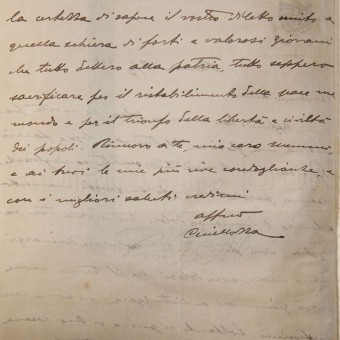 la certezza di sapere il vostro diletto unito a
quella schiera di forti e valorosi giovani
che tutto dettero alla patria, tutto seppero
sacrificare per il ristabilimento della pace nel
mondo e per il trionfo della libertà e civiltà
dei popoli. Rinnovo a te, mio caro
e ai tuoi le mie più vive condoglianze, e
con i migliori saluti credimi
affmo